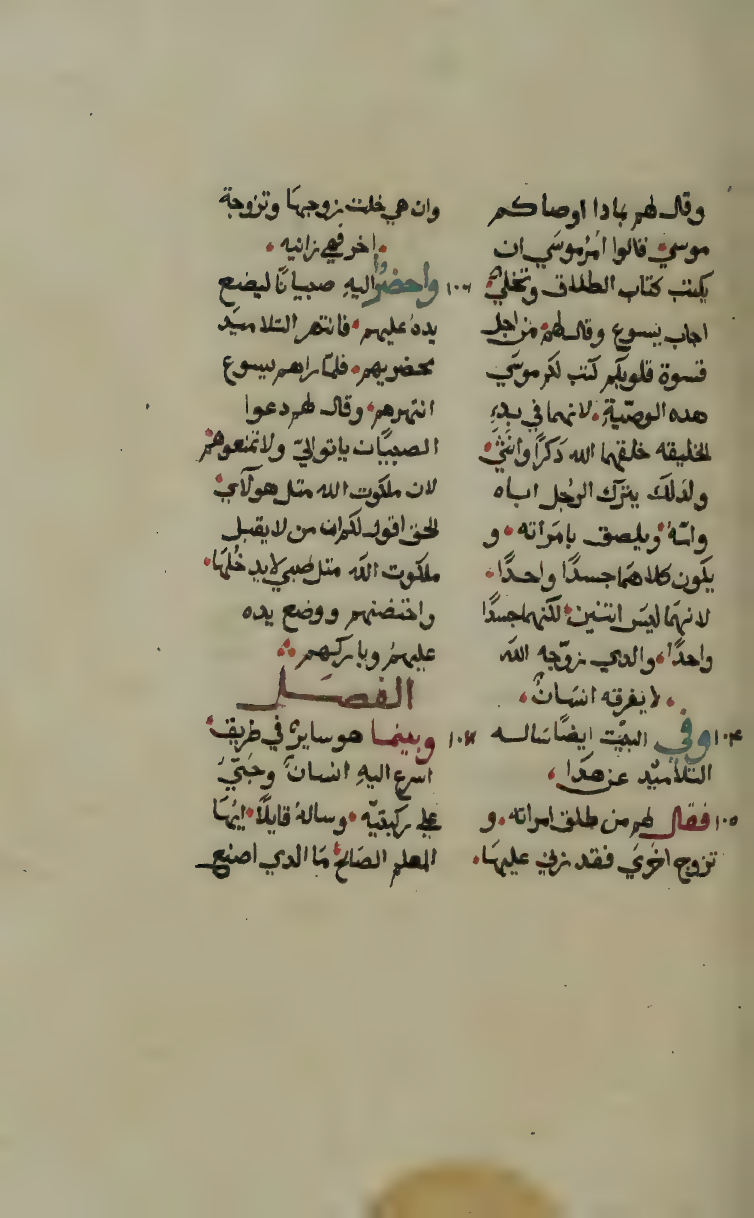 وقال لهم بمادا اوصاكم
موسي قالوا امر موسي ان
يكتب كتاب الطلاق وتخلي
اجاب يسوع وقال لهم من اجل
قسوة قلوبكم كتب لكم موسي
هده الوصية لانهما في بدء
الخليقه خلقهما الله دكرا وانثي
ولدلك يترك الرجل اباه
وامه ويلصق بامراته و
يكون كلاهما جسدا واحدا
لانهما ليس اتنين لكنهما جسدا
واحدا والدي زوجه الله
لا يفرقه انسان
١٠٤ وفي البيت ايضا ساله
التلاميد عن هدا
١٠٥ فقال لهم من طلق امراته و
تزوج اخري فقد زني عليها
وان هي خلت زوجها وتزوجة
اخر فهي زانيه
١٠٦ واحضروا اليه صبيانا ليضع
يده عليهم فانتهر التلاميد
محضريهم فلما راهم يسوع
انتهرهم وقال لهم دعوا
الصبيان ياتوا الي ولا تمنعوهم
لان ملكوت الله متل هولاي
الحق اقول لكم ان من لا يقبل
ملكوت الله متل صبي لا يدخلها
واحتضنهم ووضع يده
عليهم وباركهم
الفصل
١٠٧ وبينما هو ساير في طريق
اسرع اليه انسان وجتي
علي ركبتيه وساله قايلا ايها
المعلم الصالح ما الدي اصنع